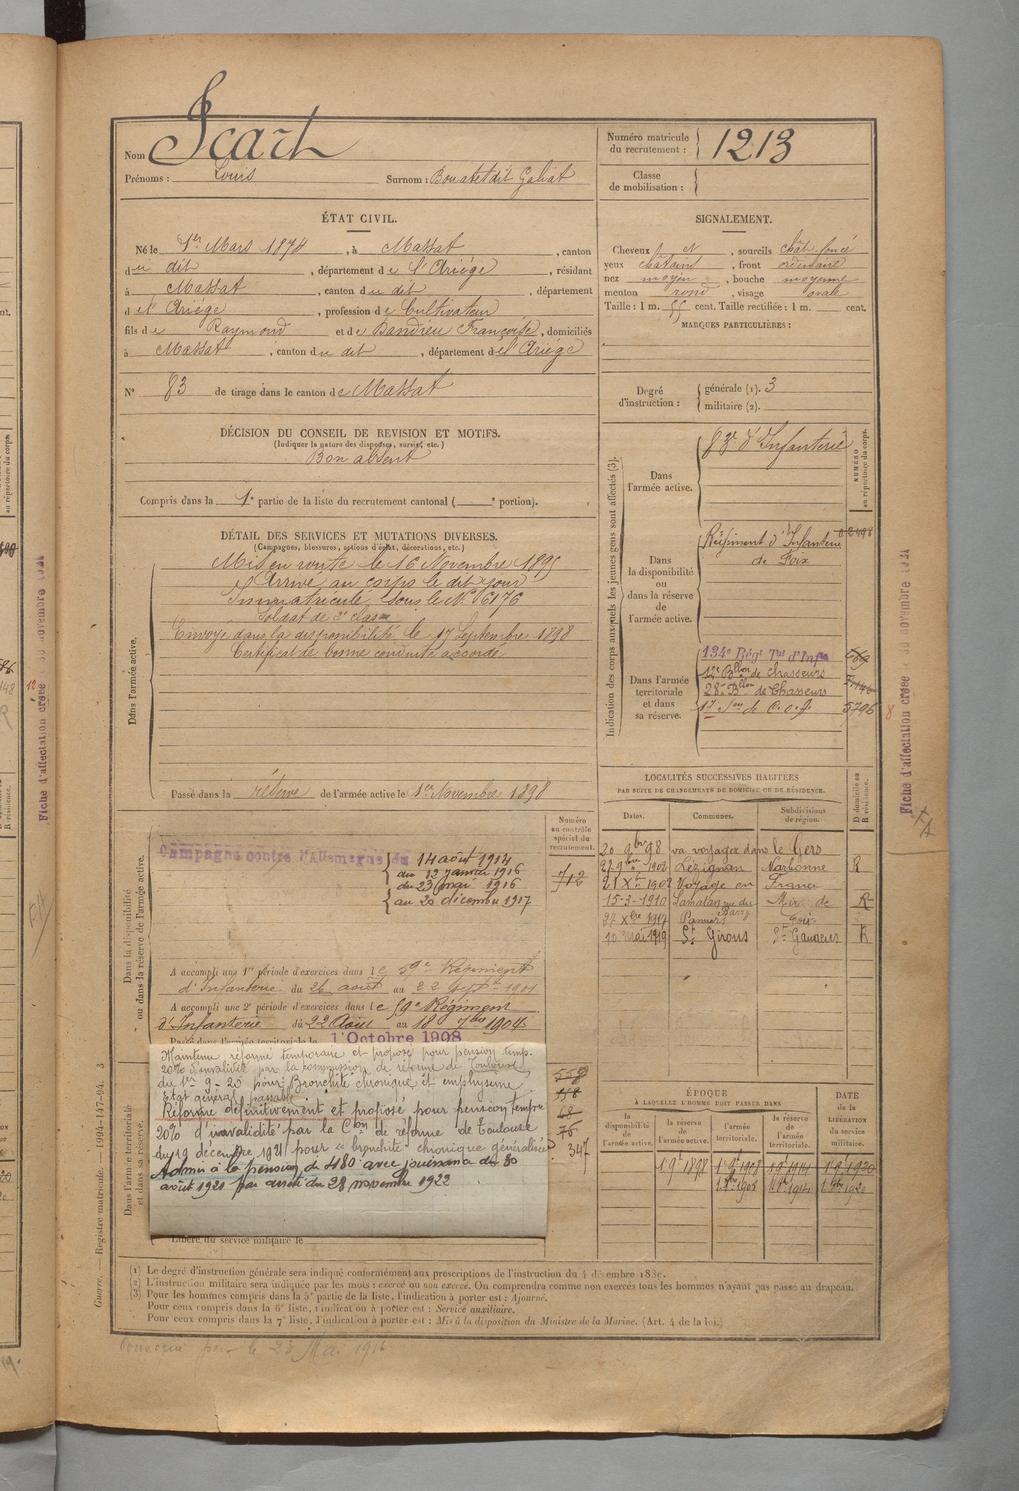 Nom Icart
Prénoms : Louis Surnom : dit Galiat
Numéro matricule du recrutement : 1213
Classe de mobilisation :
ÉTAT CIVIL.
Né le 1er Mars 1874, à Massat, canton
du dit, département de l'Ariége, résidant
à Massat, canton du dit, département
de l'Ariége, profession de Cultivateur
fils de Raymond et de Françoise, domiciliés
à Massat, canton du dit, département de l'Ariége
N° 83 de tirage dans le canton de Massat
SIGNALEMENT.
Cheveux N, sourcils chât. foncé
yeux châtains, front ordinaire
nez moyen, bouche moyenne
menton rond, visage ovale
Taille : 1 m. 55 cent. Taille rectifiée : 1 m. cent.
MARQUES PARTICULIÈRES :
Degré d'instruction : générale (1). 3
militaire (2).
DÉCISION DU CONSEIL DE REVISION ET MOTIFS.
(Indiquer la nature des dispenses, sursis, etc.)
Bon absent
Compris dans la 1e partie de la liste du recrutement cantonal ( e portion).
DÉTAIL DES SERVICES ET MUTATIONS DIVERSES.
(Campagnes, blessures, actions d'éclat, décorations, etc.)
Dans l'armée active.
Mis en route le 16 Novembre 1895
Arrivé au corps le dit jour
Immatriculé sous le N° 6176
Soldat de 2e classe
Envoyé dans la disponibilité le 17 Septembre 1898
Certificat de bonne conduite accordé
Passé dans la réserve de l'armée active le 1er Novembre 1898
Indication des corps auxquels les jeunes gens sont affectés (3).
NUMÉRO au répertoire du corps.
Dans l'armée active.
83e d'Infanterie
Dans la disponibilité ou dans la réserve de l'armée active.
Régiment d'Infanterie
de Foix
Dans l'armée territoriale et dans sa réserve.
134e Régt Tal d'Infie
12e Bllon de Chasseurs
28e Bllon de Chasseurs
17 Son de C.O.A. 5796
Fiche d'affectation créée le 30 novembre 1921
Dans la disponibilité ou dans la réserve de l'armée active.
Numéro au contrôle spécial du recrutement.
712
Campagne contre l'Allemagne du 14 août 1914
au 12 janvier 1916
du 23 mai 1916
au 20 décembre 1917
A accompli une 1re période d'exercices dans le 59e Régiment
d'Infanterie du 26 août au 22 Septbre 1901
A accompli une 2e période d'exercices dans le 59e Régiment
d'Infanterie du 22 Août au 18 7bre 1904
1 Octobre 1908
LOCALITÉS SUCCESSIVES HABITÉES
PAR SUITE DE CHANGEMENTS DE DOMICILE OU DE RÉSIDENCE.
Dates. Communes. Subdivisions de région. D domicile ou R résidence.
20 9bre 98 va voyager dans le Gers
27 9bre 1902 Lézignan Narbonne R
21 Xbre 1902 Voyage en France
15-3-1910 Mir de R
27 Xbre 1917 Pamiers Foix
10 mai 1919 St Girons St Gaudens R
Dans l'armée territoriale et dans sa réserve.
Maintenu réformé temporaire et proposé pour pension temp.
20% d'invalidité par la commission de réforme de Toulouse
du 1er 9-20 pour Bronchite chronique et emphysème
Etat général passable.
Réformé définitivement et proposé pour pension tempre
20% d'invalidité par la Con de réforme de Toulouse
du 19 décembre 1921 pour bronchite chronique généralisée
Admis à la pension de 480 avec jouissance du 30
août 1920 par arrêté du 28 novembre 1922
Libéré du service militaire le
559
158
68
76
347
ÉPOQUE
À LAQUELLE L'HOMME DOIT PASSER DANS
DATE de la LIBÉRATION du service militaire.
la disponibilité de l'armée active. la réserve de l'armée active. l'armée territoriale. la réserve de l'armée territoriale.
(1) Le degré d'instruction générale sera indiqué conformément aux prescriptions de l'instruction du 4 décembre 1889.
(2) L'instruction militaire sera indiquée par les mots : exercé ou non exercé. On comprendra comme non exercés tous les hommes n'ayant pas passé au drapeau.
(3) Pour les hommes compris dans la 5e partie de la liste, l'indication à porter est : Ajourné.
Pour ceux compris dans la 6e liste, l'indication à porter est : Service auxiliaire.
Pour ceux compris dans la 7e liste, l'indication à porter est : Mis à la disposition du Ministre de la Marine. (Art. 4 de la loi.)
Convoqué pour le 23 Mai 1916
Guerre. — Registre matricule. — 1994-147-94. 3